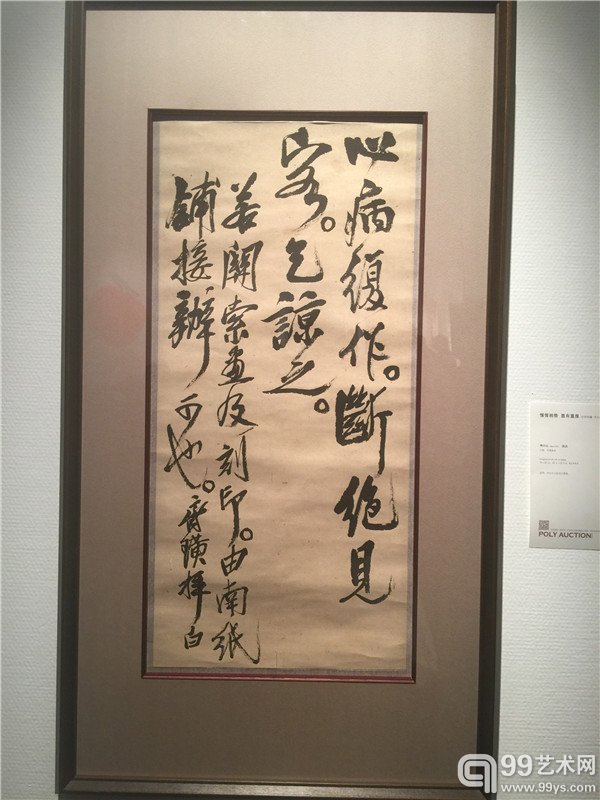 心病復作。斷絶見
客。乞諒之。
若關索畫及刻印。由南紙
鋪接辦可也。齊璜拜白
POLY AUCTION
99艺术网
www.99ys.com